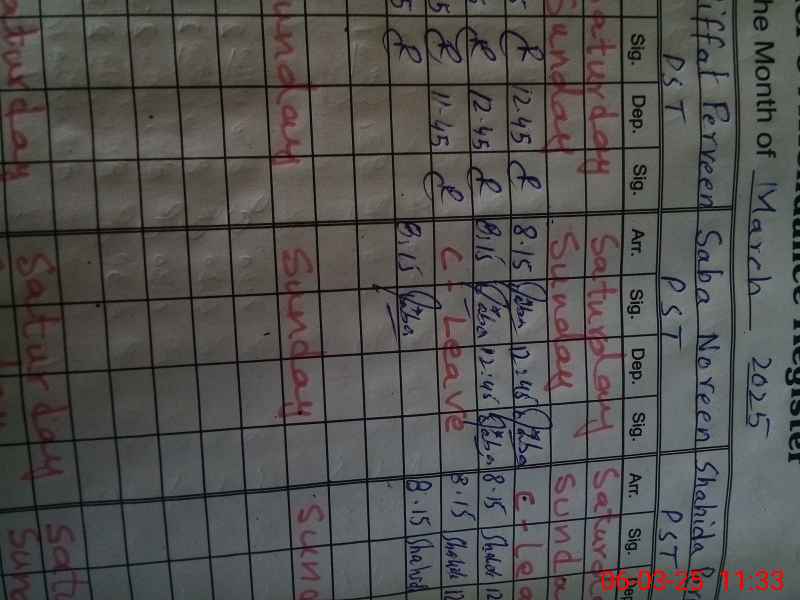 Register
he Month of March 2025
iffat Perveen Saba Noreen Shahida
PST PST PST
Sig. Dep. Sig. Arr. Sig. Dep. Sig. Arr. Sig. Dep
aturday Saturday Saturd
unday Sunday Sunda
12.45 8.15 Saba 12:45 Saba C-Lea
12.45 8:15 Saba 12:45 Saba 8.15 Shahida 12
11-45 C-Leave 8.15 Shahida 12
8:15 Saba 8.15 Shahid
unday Sunday Sund
aturday Saturday Satu
Sund
06-03-25 11:33